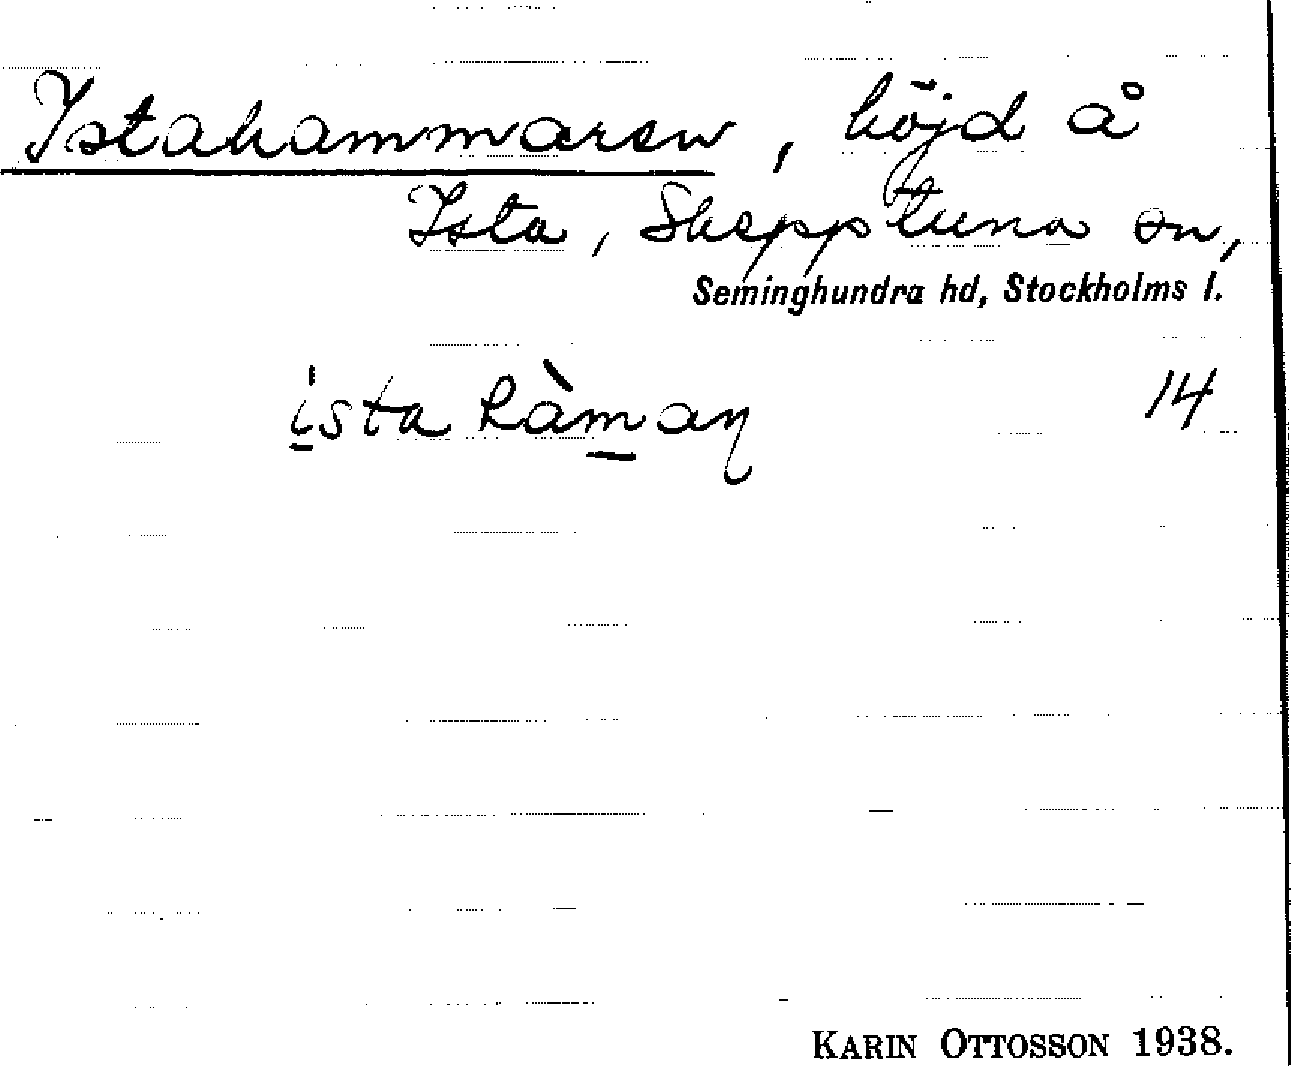 Istahammaren, höjd å
Ista, Skepptuna sn,
Seminghundra hd, Stockholms l.
i̲sta hàm̲aɳ 14
KARIN OTTOSSON 1938.